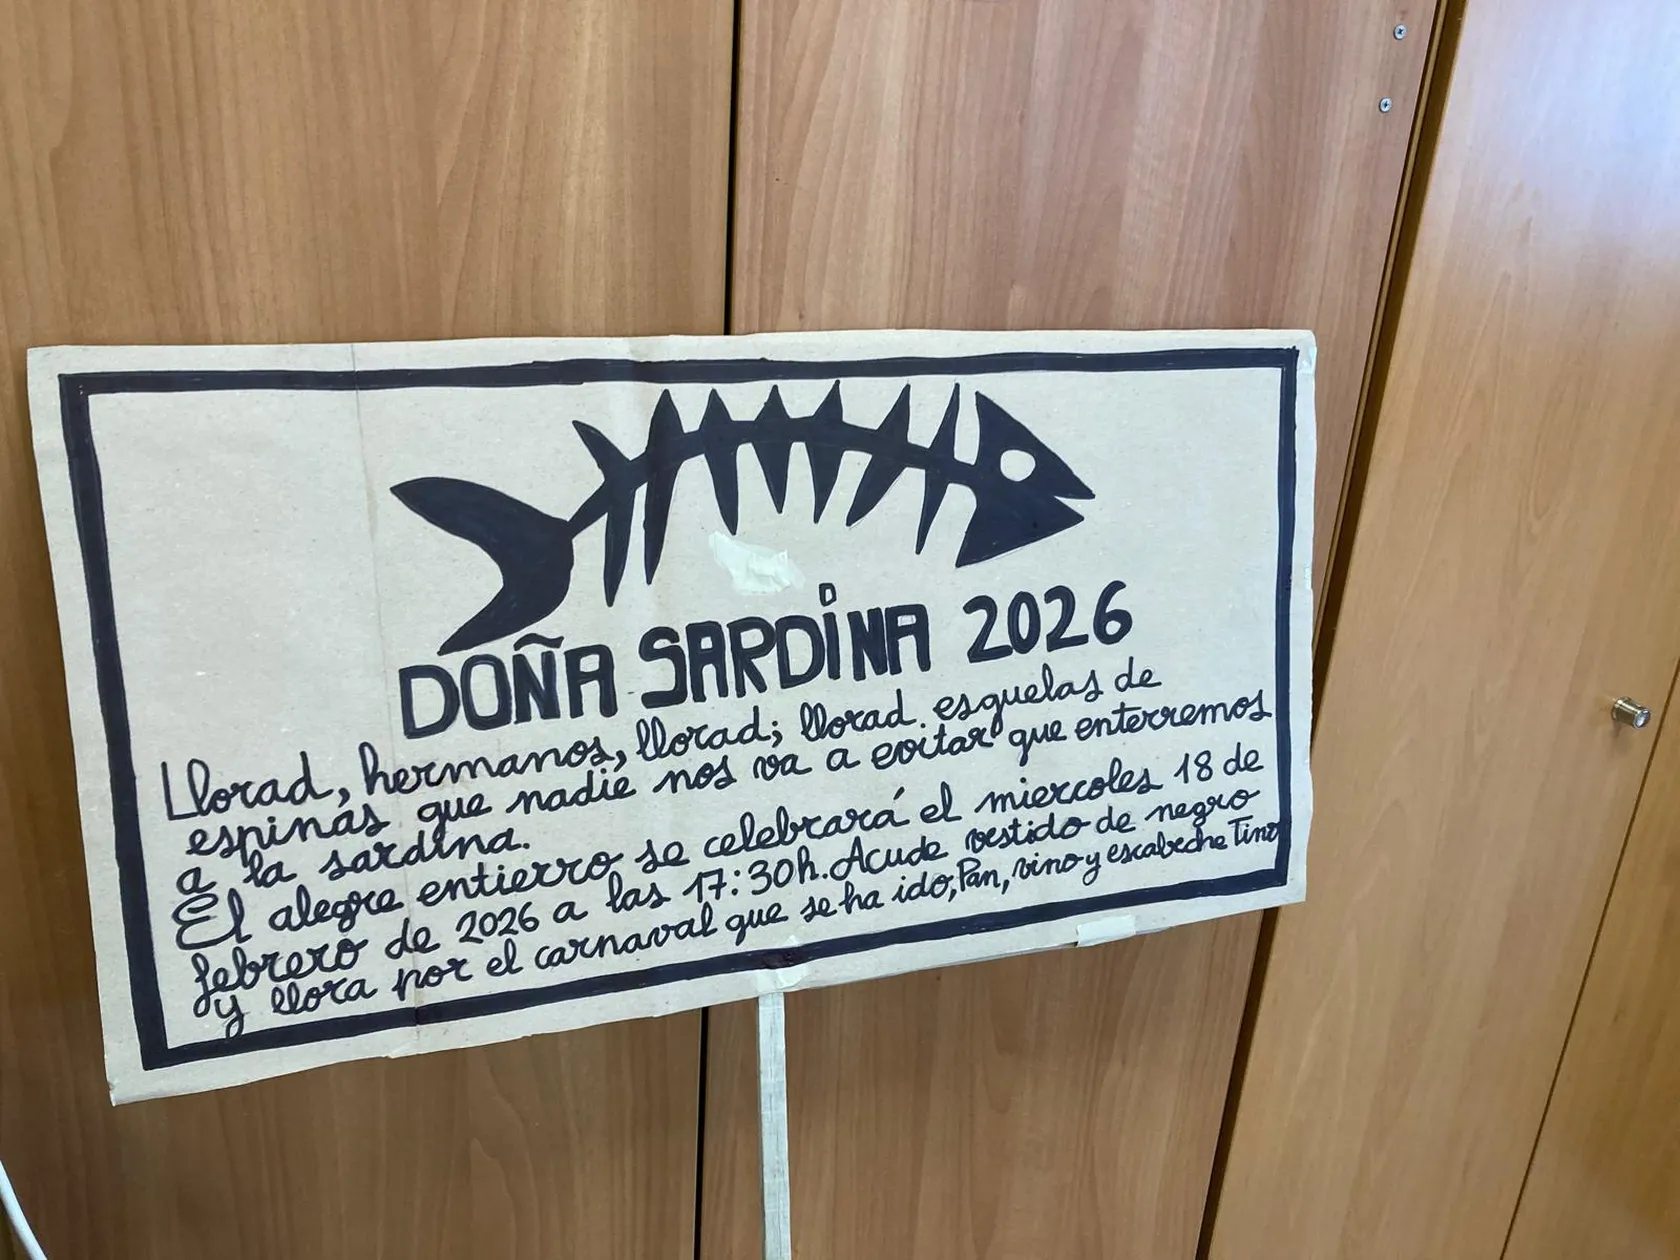 DOÑA SARDINA 2026
Llorad, hermanos, llorad; llorad esquelas de
espinas que nadie nos va a evitar que enterremos
a la sardina.
El alegre entierro se celebrará el miercoles 18 de
febrero de 2026 a las 17:30h. Acude vestido de negro
y llora por el carnaval que se ha ido, Pan, vino y escabeche Tino